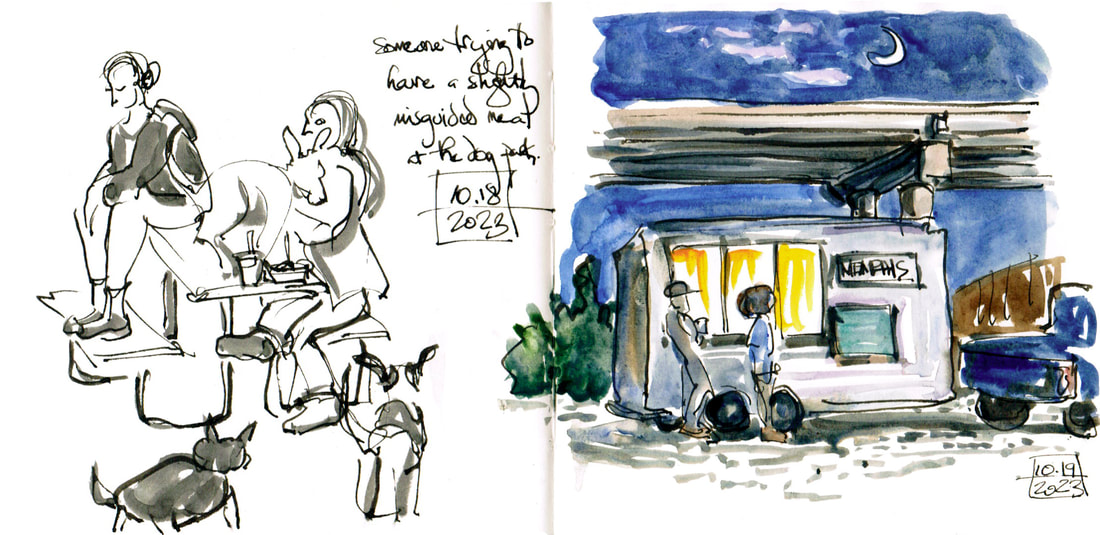 someone trying to
have a slightly
misguided meal
at the dog park.
10.18
2023
MEMPHIS
10.19
2023